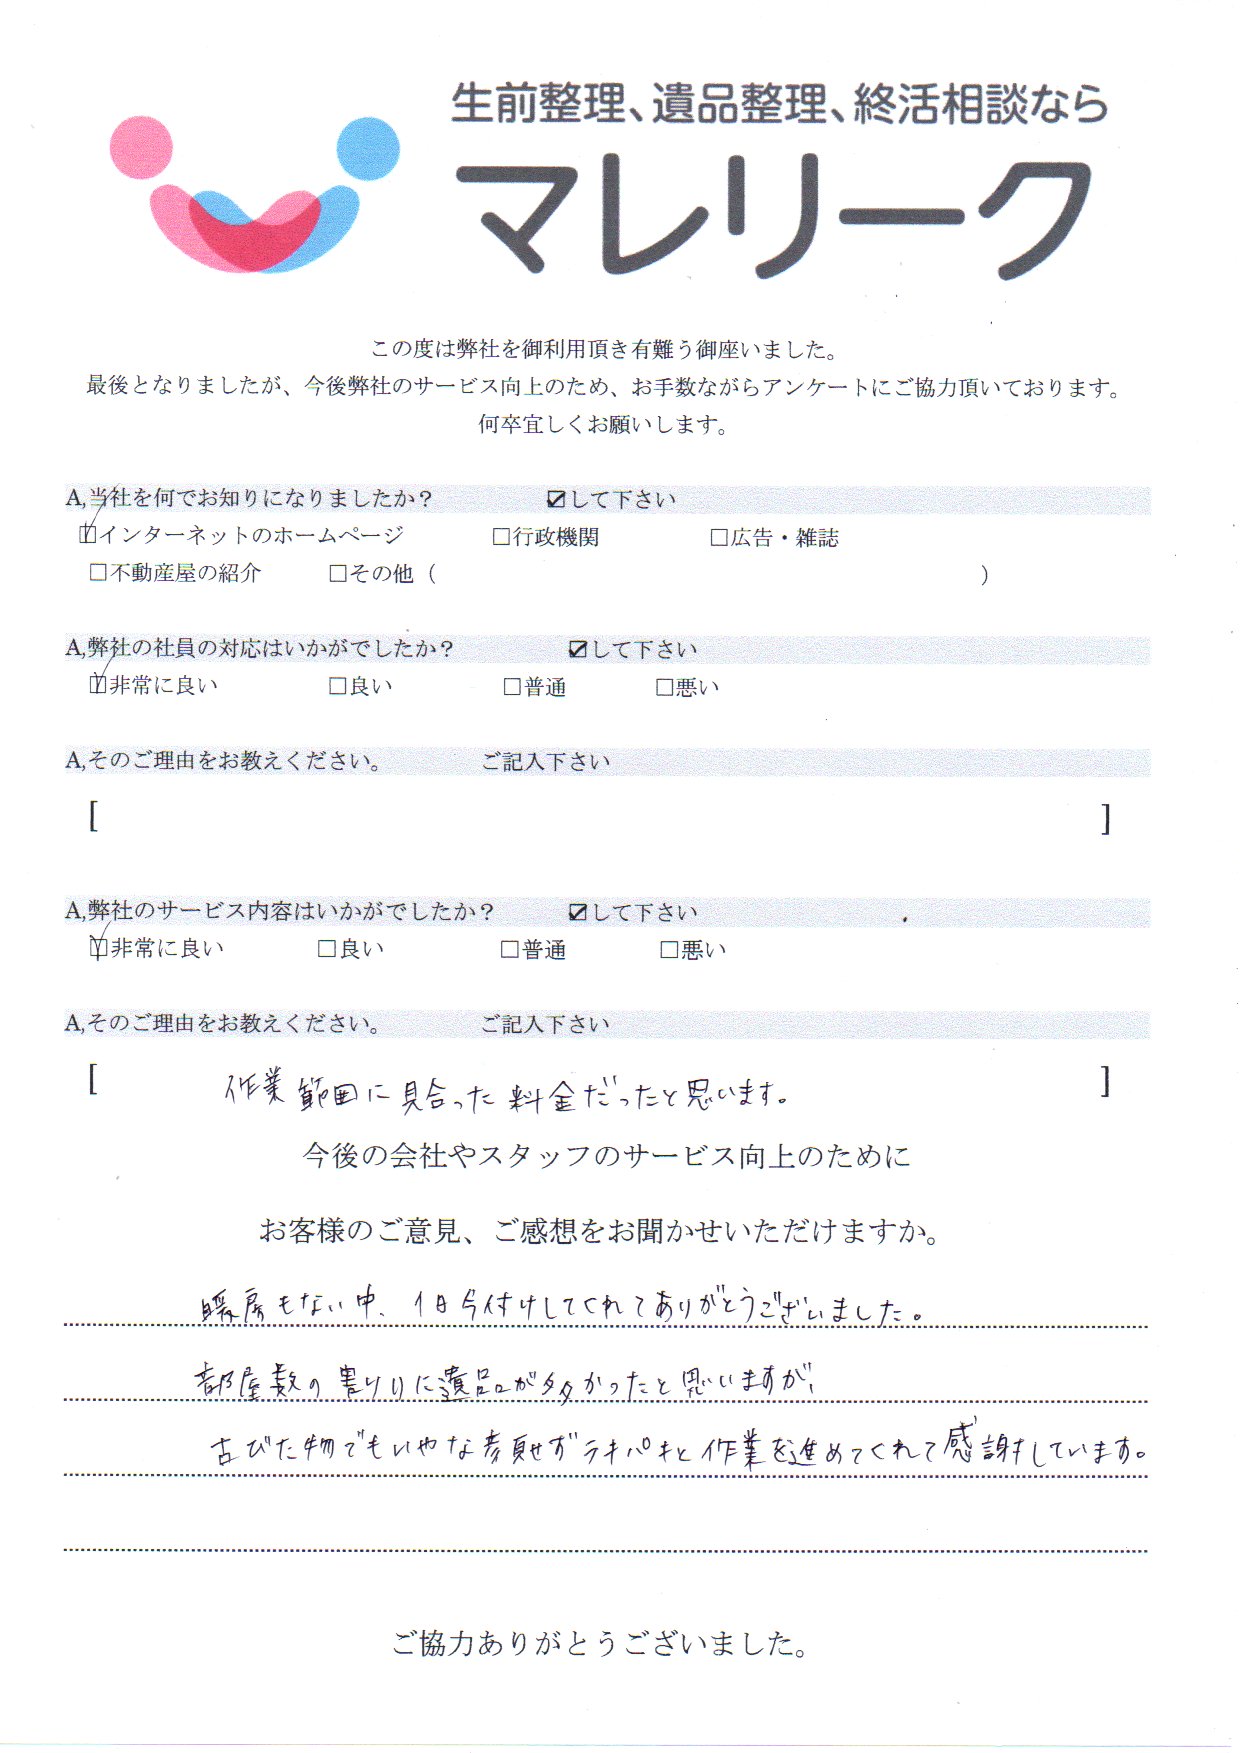 生前整理、遺品整理、終活相談なら
マレリーク
この度は弊社を御利用頂き有難う御座いました。
最後となりましたが、今後弊社のサービス向上のため、お手数ながらアンケートにご協力頂いております。
何卒宜しくお願いします。
A,当社を何でお知りになりましたか？ ☑して下さい
☑インターネットのホームページ □行政機関 □広告・雑誌
□不動産屋の紹介 □その他（ ）
A,弊社の社員の対応はいかがでしたか？ ☑して下さい
☑非常に良い □良い □普通 □悪い
A,そのご理由をお教えください。 ご記入下さい
[ ]
A,弊社のサービス内容はいかがでしたか？ ☑して下さい
☑非常に良い □良い □普通 □悪い
A,そのご理由をお教えください。 ご記入下さい
[ 作業範囲に見合った料金だったと思います。 ]
今後の会社やスタッフのサービス向上のために
お客様のご意見、ご感想をお聞かせいただけますか。
暖房もない中、1日片付けしてくれてありがとうございました。
部屋数の割りに遺品が多かったと思いますが、
古びた物でもいやな顔見せずテキパキと作業を進めてくれて感謝しています。
ご協力ありがとうございました。